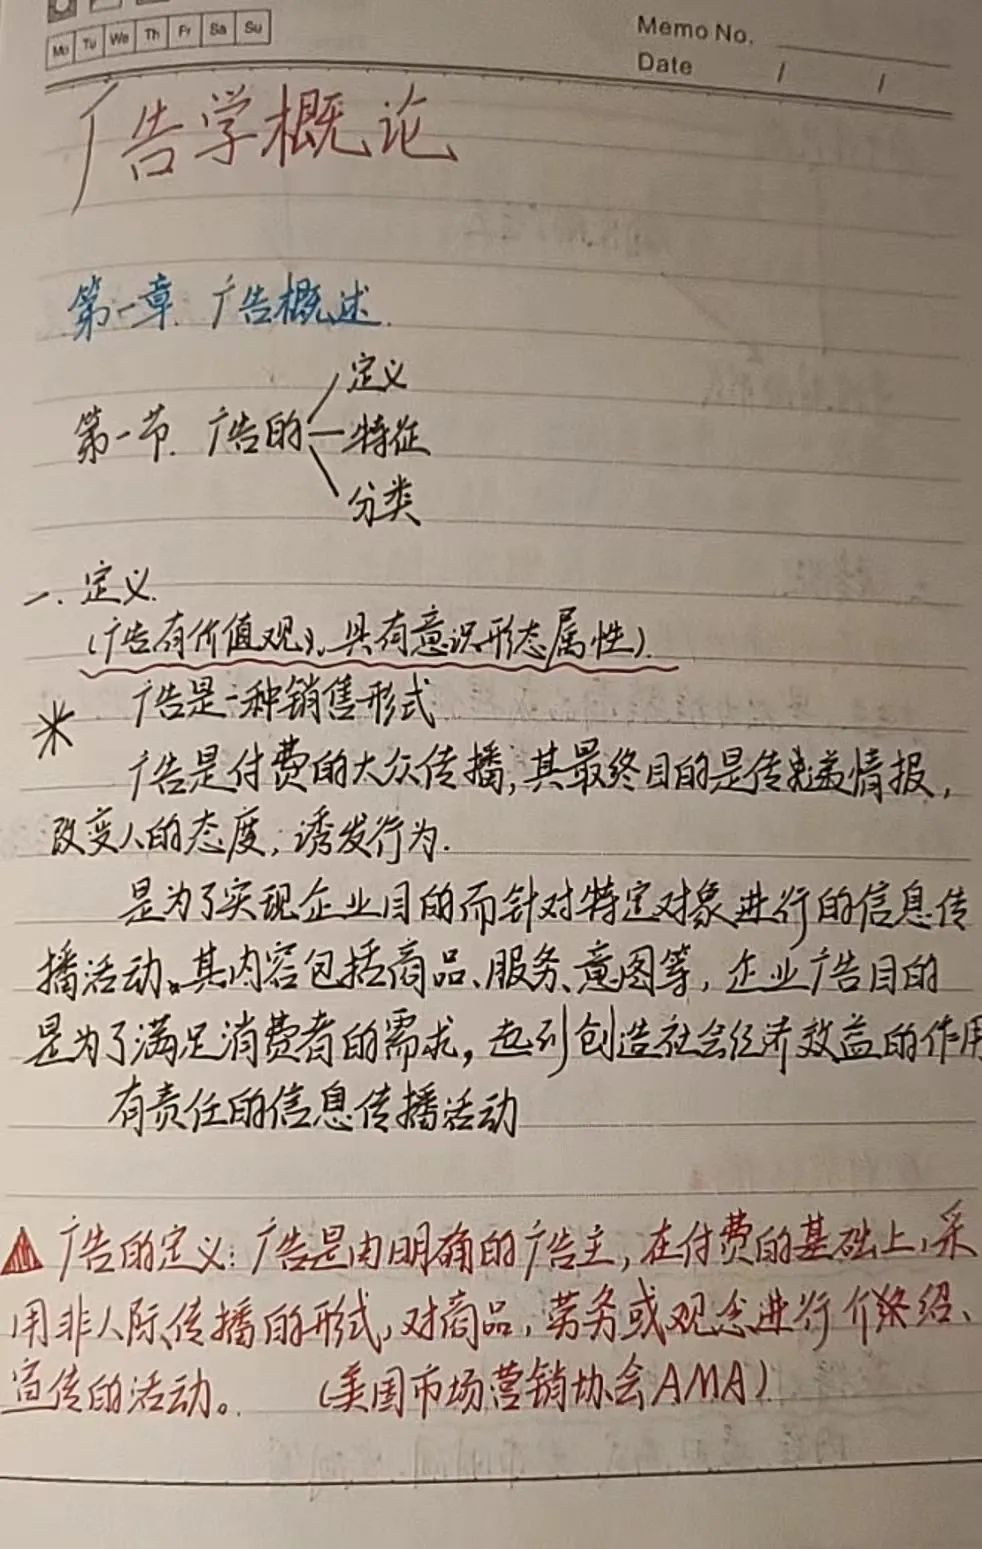 Mo Tu We Th Fr Sa Su
Memo No.
Date / /
广告学概论
第一章. 广告概述.
第一节. 广告的
定义
特征
分类
一. 定义.
(广告有价值观, 具有意识形态属性).
* 广告是一种销售形式
广告是付费的大众传播, 其最终目的是传递情报,
改变人的态度, 诱发行为.
是为了实现企业目的而针对特定对象进行的信息传
播活动。其内容包括商品、服务、意图等, 企业广告目的
是为了满足消费者的需求, 起到创造社会经济效益的作用
有责任的信息传播活动
广告的定义: 广告是由明确的广告主, 在付费的基础上, 采
用非人际传播的形式, 对商品, 劳务或观念进行介绍、
宣传的活动。 (美国市场营销协会AMA)